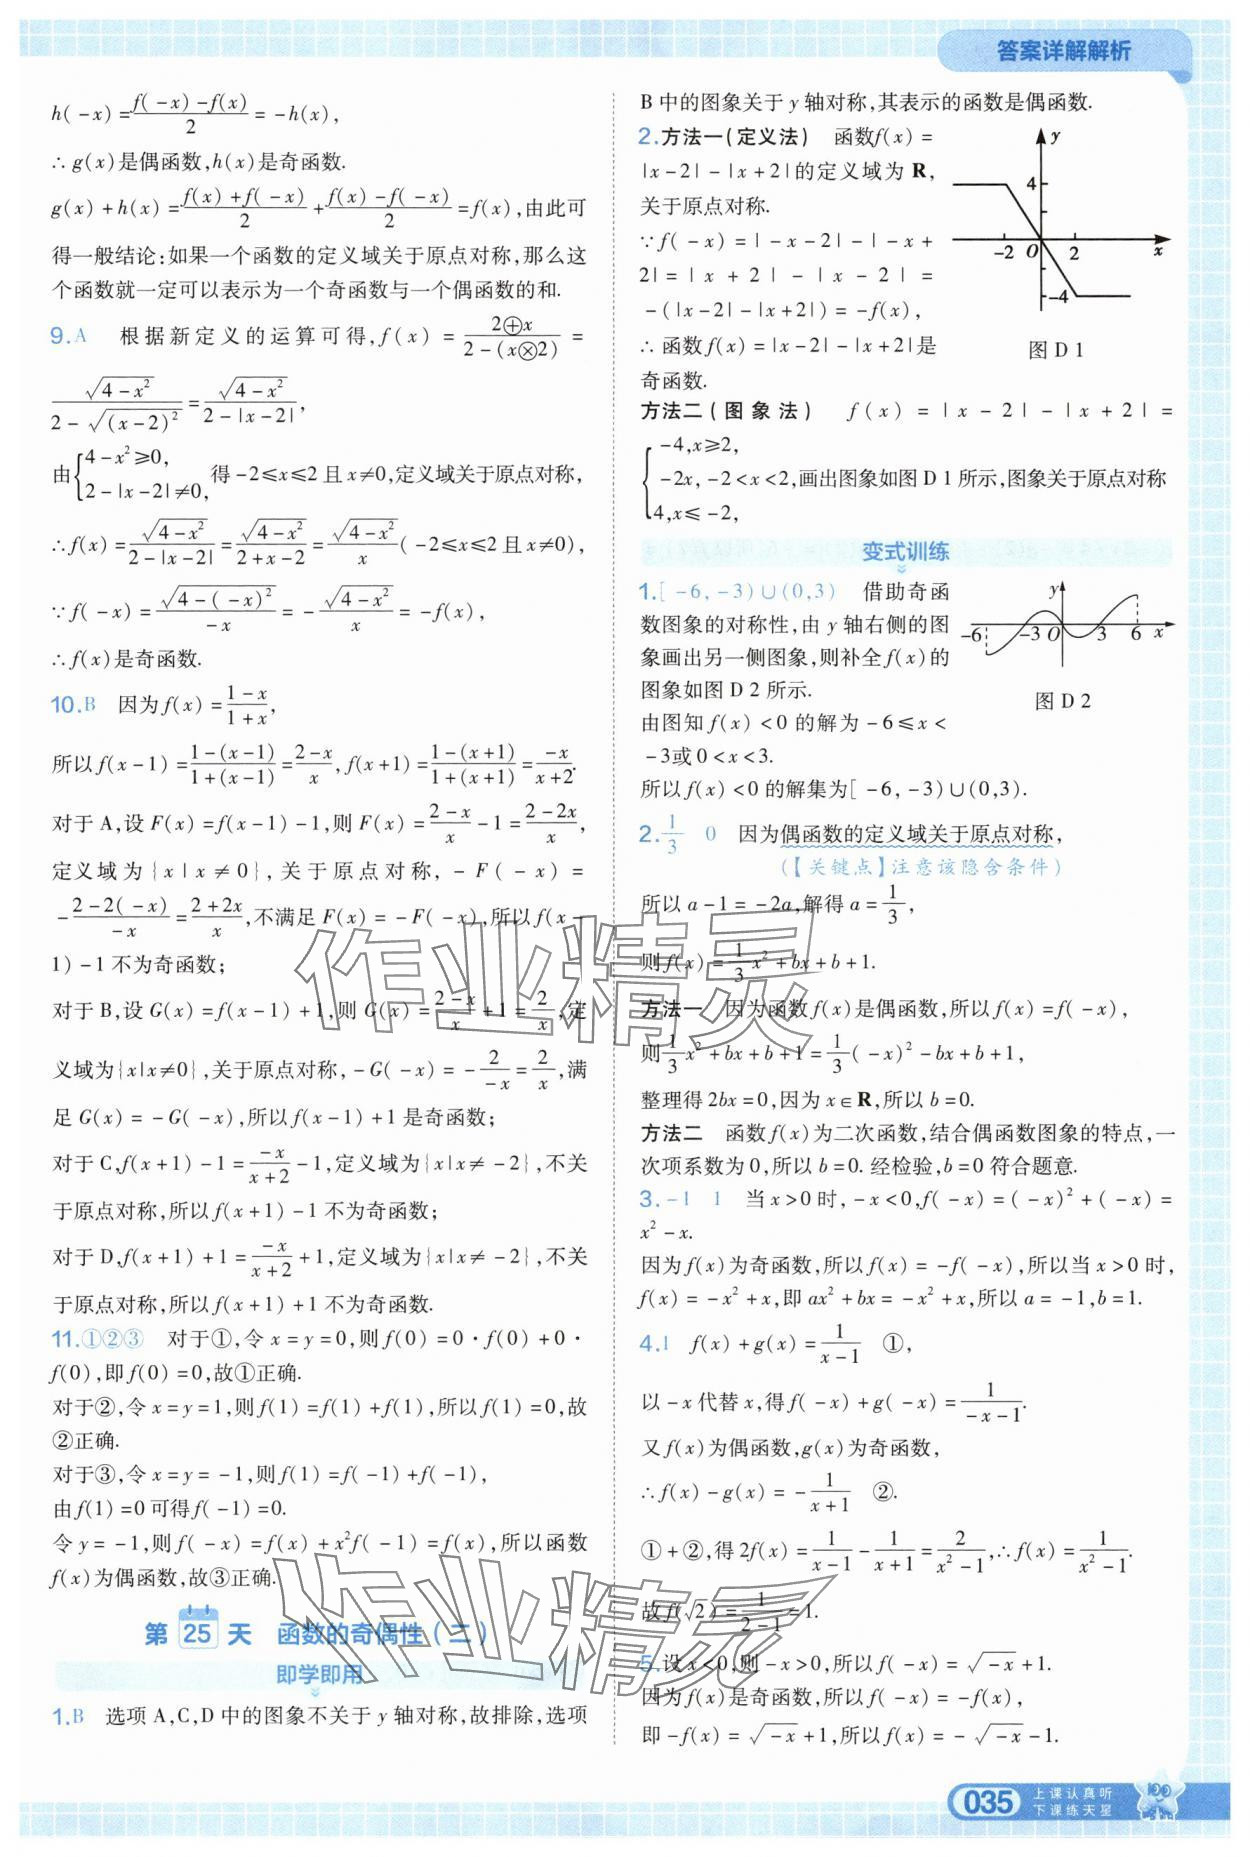 答案详解解析
h(-x)=\frac{f(-x)-f(x)}{2}=-h(x),
∴g(x)是偶函数,h(x)是奇函数.
g(x)+h(x)=\frac{f(x)+f(-x)}{2}+\frac{f(x)-f(-x)}{2}=f(x),由此可
得一般结论:如果一个函数的定义域关于原点对称,那么这
个函数就一定可以表示为一个奇函数与一个偶函数的和.
9.A 根据新定义的运算可得,f(x)=\frac{2⊕x}{2-(x⊗2)}=
\frac{\sqrt{4-x^2}}{2-\sqrt{(x-2)^2}}=\frac{\sqrt{4-x^2}}{2-|x-2|},
由{4-x²≥0, 2-|x-2|≠0, 得-2≤x≤2且x≠0,定义域关于原点对称,
∴f(x)=\frac{\sqrt{4-x^2}}{2-|x-2|}=\frac{\sqrt{4-x^2}}{2+x-2}=\frac{\sqrt{4-x^2}}{x}(-2≤x≤2且x≠0),
∵f(-x)=\frac{\sqrt{4-(-x)^2}}{-x}=-\frac{\sqrt{4-x^2}}{x}=-f(x),
∴f(x)是奇函数.
10.B 因为f(x)=\frac{1-x}{1+x},
所以f(x-1)=\frac{1-(x-1)}{1+(x-1)}=\frac{2-x}{x},f(x+1)=\frac{1-(x+1)}{1+(x+1)}=\frac{-x}{x+2}.
对于A,设F(x)=f(x-1)-1,则F(x)=\frac{2-x}{x}-1=\frac{2-2x}{x},
定义域为{x|x≠0},关于原点对称,-F(-x)=
-\frac{2-2(-x)}{-x}=\frac{2+2x}{x},不满足F(x)=-F(-x),所以f(x-
1)-1不为奇函数;
对于B,设G(x)=f(x-1)+1,则G(x)=\frac{2-x}{x}+1=\frac{2}{x},定
义域为{x|x≠0},关于原点对称,-G(-x)=-\frac{2}{-x}=\frac{2}{x},满
足G(x)=-G(-x),所以f(x-1)+1是奇函数;
对于C,f(x+1)-1=\frac{-x}{x+2}-1,定义域为{x|x≠-2},不关
于原点对称,所以f(x+1)-1不为奇函数;
对于D,f(x+1)+1=\frac{-x}{x+2}+1,定义域为{x|x≠-2},不关
于原点对称,所以f(x+1)+1不为奇函数.
11.①②③ 对于①,令x=y=0,则f(0)=0·f(0)+0·
f(0),即f(0)=0,故①正确.
对于②,令x=y=1,则f(1)=f(1)+f(1),所以f(1)=0,故
②正确.
对于③,令x=y=-1,则f(1)=f(-1)+f(-1),
由f(1)=0可得f(-1)=0.
令y=-1,则f(-x)=f(x)+x²f(-1)=f(x),所以函数
f(x)为偶函数,故③正确.
第25天 函数的奇偶性(二)
即学即用
1.B 选项A,C,D中的图象不关于y轴对称,故排除,选项
B中的图象关于y轴对称,其表示的函数是偶函数.
2.方法一(定义法) 函数f(x)=
|x-2|-|x+2|的定义域为R,
关于原点对称.
∵f(-x)=|-x-2|-|-x+
2|=|x+2|-|x-2|=
-(|x-2|-|x+2|)=-f(x),
∴函数f(x)=|x-2|-|x+2|是
奇函数.
y
4
-2 O 2 x
-4
图D1
方法二(图象法) f(x)=|x-2|-|x+2|=
{-4,x≥2,
-2x,-2<x<2,画出图象如图D1所示,图象关于原点对称
4,x≤-2,
变式训练
1.[-6,-3)∪(0,3) 借助奇函
数图象的对称性,由y轴右侧的图
象画出另一侧图象,则补全f(x)的
图象如图D2所示.
由图知f(x)<0的解为-6≤x<
-3或0<x<3.
y
-6 -3 O 3 6 x
图D2
所以f(x)<0的解集为[-6,-3)∪(0,3).
2.\frac{1}{3} 0 因为偶函数的定义域关于原点对称,
(【关键点】注意该隐含条件)
所以a-1=-2a,解得a=\frac{1}{3},
则f(x)=\frac{1}{3}x²+bx+b+1.
方法一 因为函数f(x)是偶函数,所以f(x)=f(-x),
则\frac{1}{3}x²+bx+b+1=\frac{1}{3}(-x)²-bx+b+1,
整理得2bx=0,因为x∈R,所以b=0.
方法二 函数f(x)为二次函数,结合偶函数图象的特点,一
次项系数为0,所以b=0.经检验,b=0符合题意.
3.-1 1 当x>0时,-x<0,f(-x)=(-x)²+(-x)=
x²-x.
因为f(x)为奇函数,所以f(x)=-f(-x),所以当x>0时,
f(x)=-x²+x,即ax²+bx=-x²+x,所以a=-1,b=1.
4.1 f(x)+g(x)=\frac{1}{x-1} ①,
以-x代替x,得f(-x)+g(-x)=\frac{1}{-x-1}.
又f(x)为偶函数,g(x)为奇函数,
∴f(x)-g(x)=-\frac{1}{x+1} ②.
①+②,得2f(x)=\frac{1}{x-1}-\frac{1}{x+1}=\frac{2}{x²-1},∴f(x)=\frac{1}{x²-1}.
故f(\sqrt{2})=\frac{1}{2-1}=1.
5.设x<0,则-x>0,所以f(-x)=\sqrt{-x}+1.
因为f(x)是奇函数,所以f(-x)=-f(x),
即-f(x)=\sqrt{-x}+1,所以f(x)=-\sqrt{-x}-1.
作业精灵
作业精灵
035
上课认真听
下课练天星